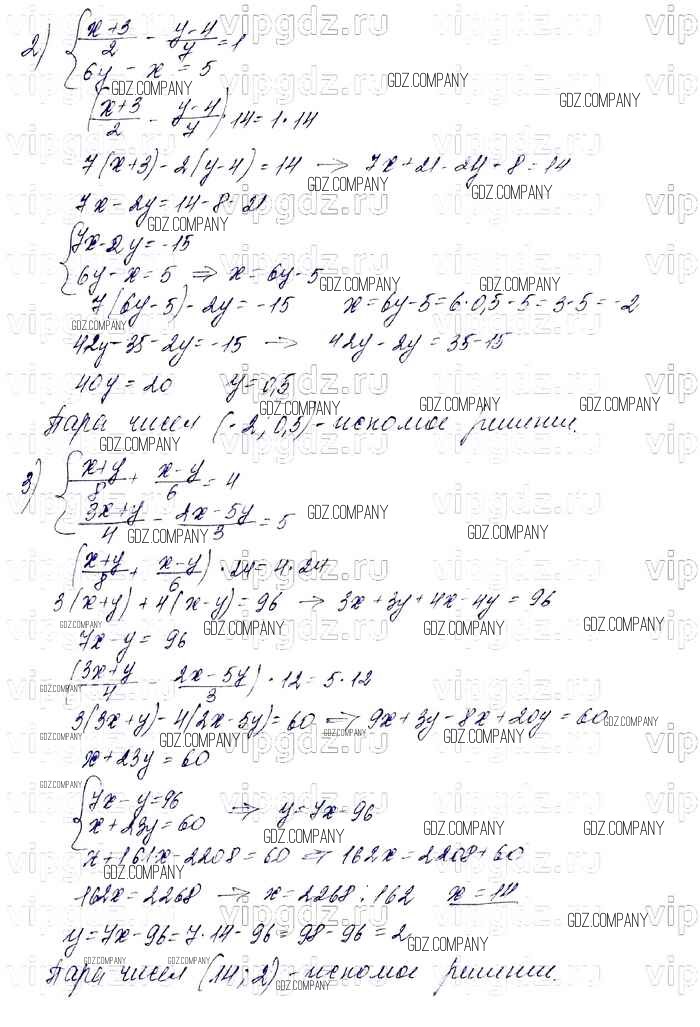 2) { (x+3)/2 - (y-4)/y = 1
6y - x = 5
((x+3)/2 - (y-4)/7) · 14 = 1 · 14
7(x+3) - 2(y-4) = 14 → 7x + 21 - 2y + 8 = 14
7x - 2y = 14 - 8 - 21
{ 7x - 2y = -15
6y - x = 5 ⇒ x = 6y - 5
7(6y-5) - 2y = -15 x = 6y - 5 = 6 · 0,5 - 5 = 3 - 5 = -2
42y - 35 - 2y = -15 → 42y - 2y = 35 - 15
40y = 20 y = 0,5
Пара чисел (-2; 0,5) - искомое решение.
3) { (x+y)/8 + (x-y)/6 = 4
(3x+y)/4 - (2x-5y)/3 = 5
((x+y)/8 + (x-y)/6) · 24 = 4 · 24
3(x+y) + 4(x-y) = 96 → 3x + 3y + 4x - 4y = 96
7x - y = 96
((3x+y)/4 - (2x-5y)/3) · 12 = 5 · 12
3(3x+y) - 4(2x-5y) = 60 ⇒ 9x + 3y - 8x + 20y = 60
x + 23y = 60
{ 7x - y = 96 ⇒ y = 7x - 96
x + 23y = 60
x + 161x - 2208 = 60 ⇒ 162x = 2208 + 60
162x = 2268 → x = 2268 : 162 x = 14
y = 7x - 96 = 7 · 14 - 96 = 98 - 96 = 2
Пара чисел (14; 2) - искомое решение.
vipgdz.ru
GDZ.COMPANY